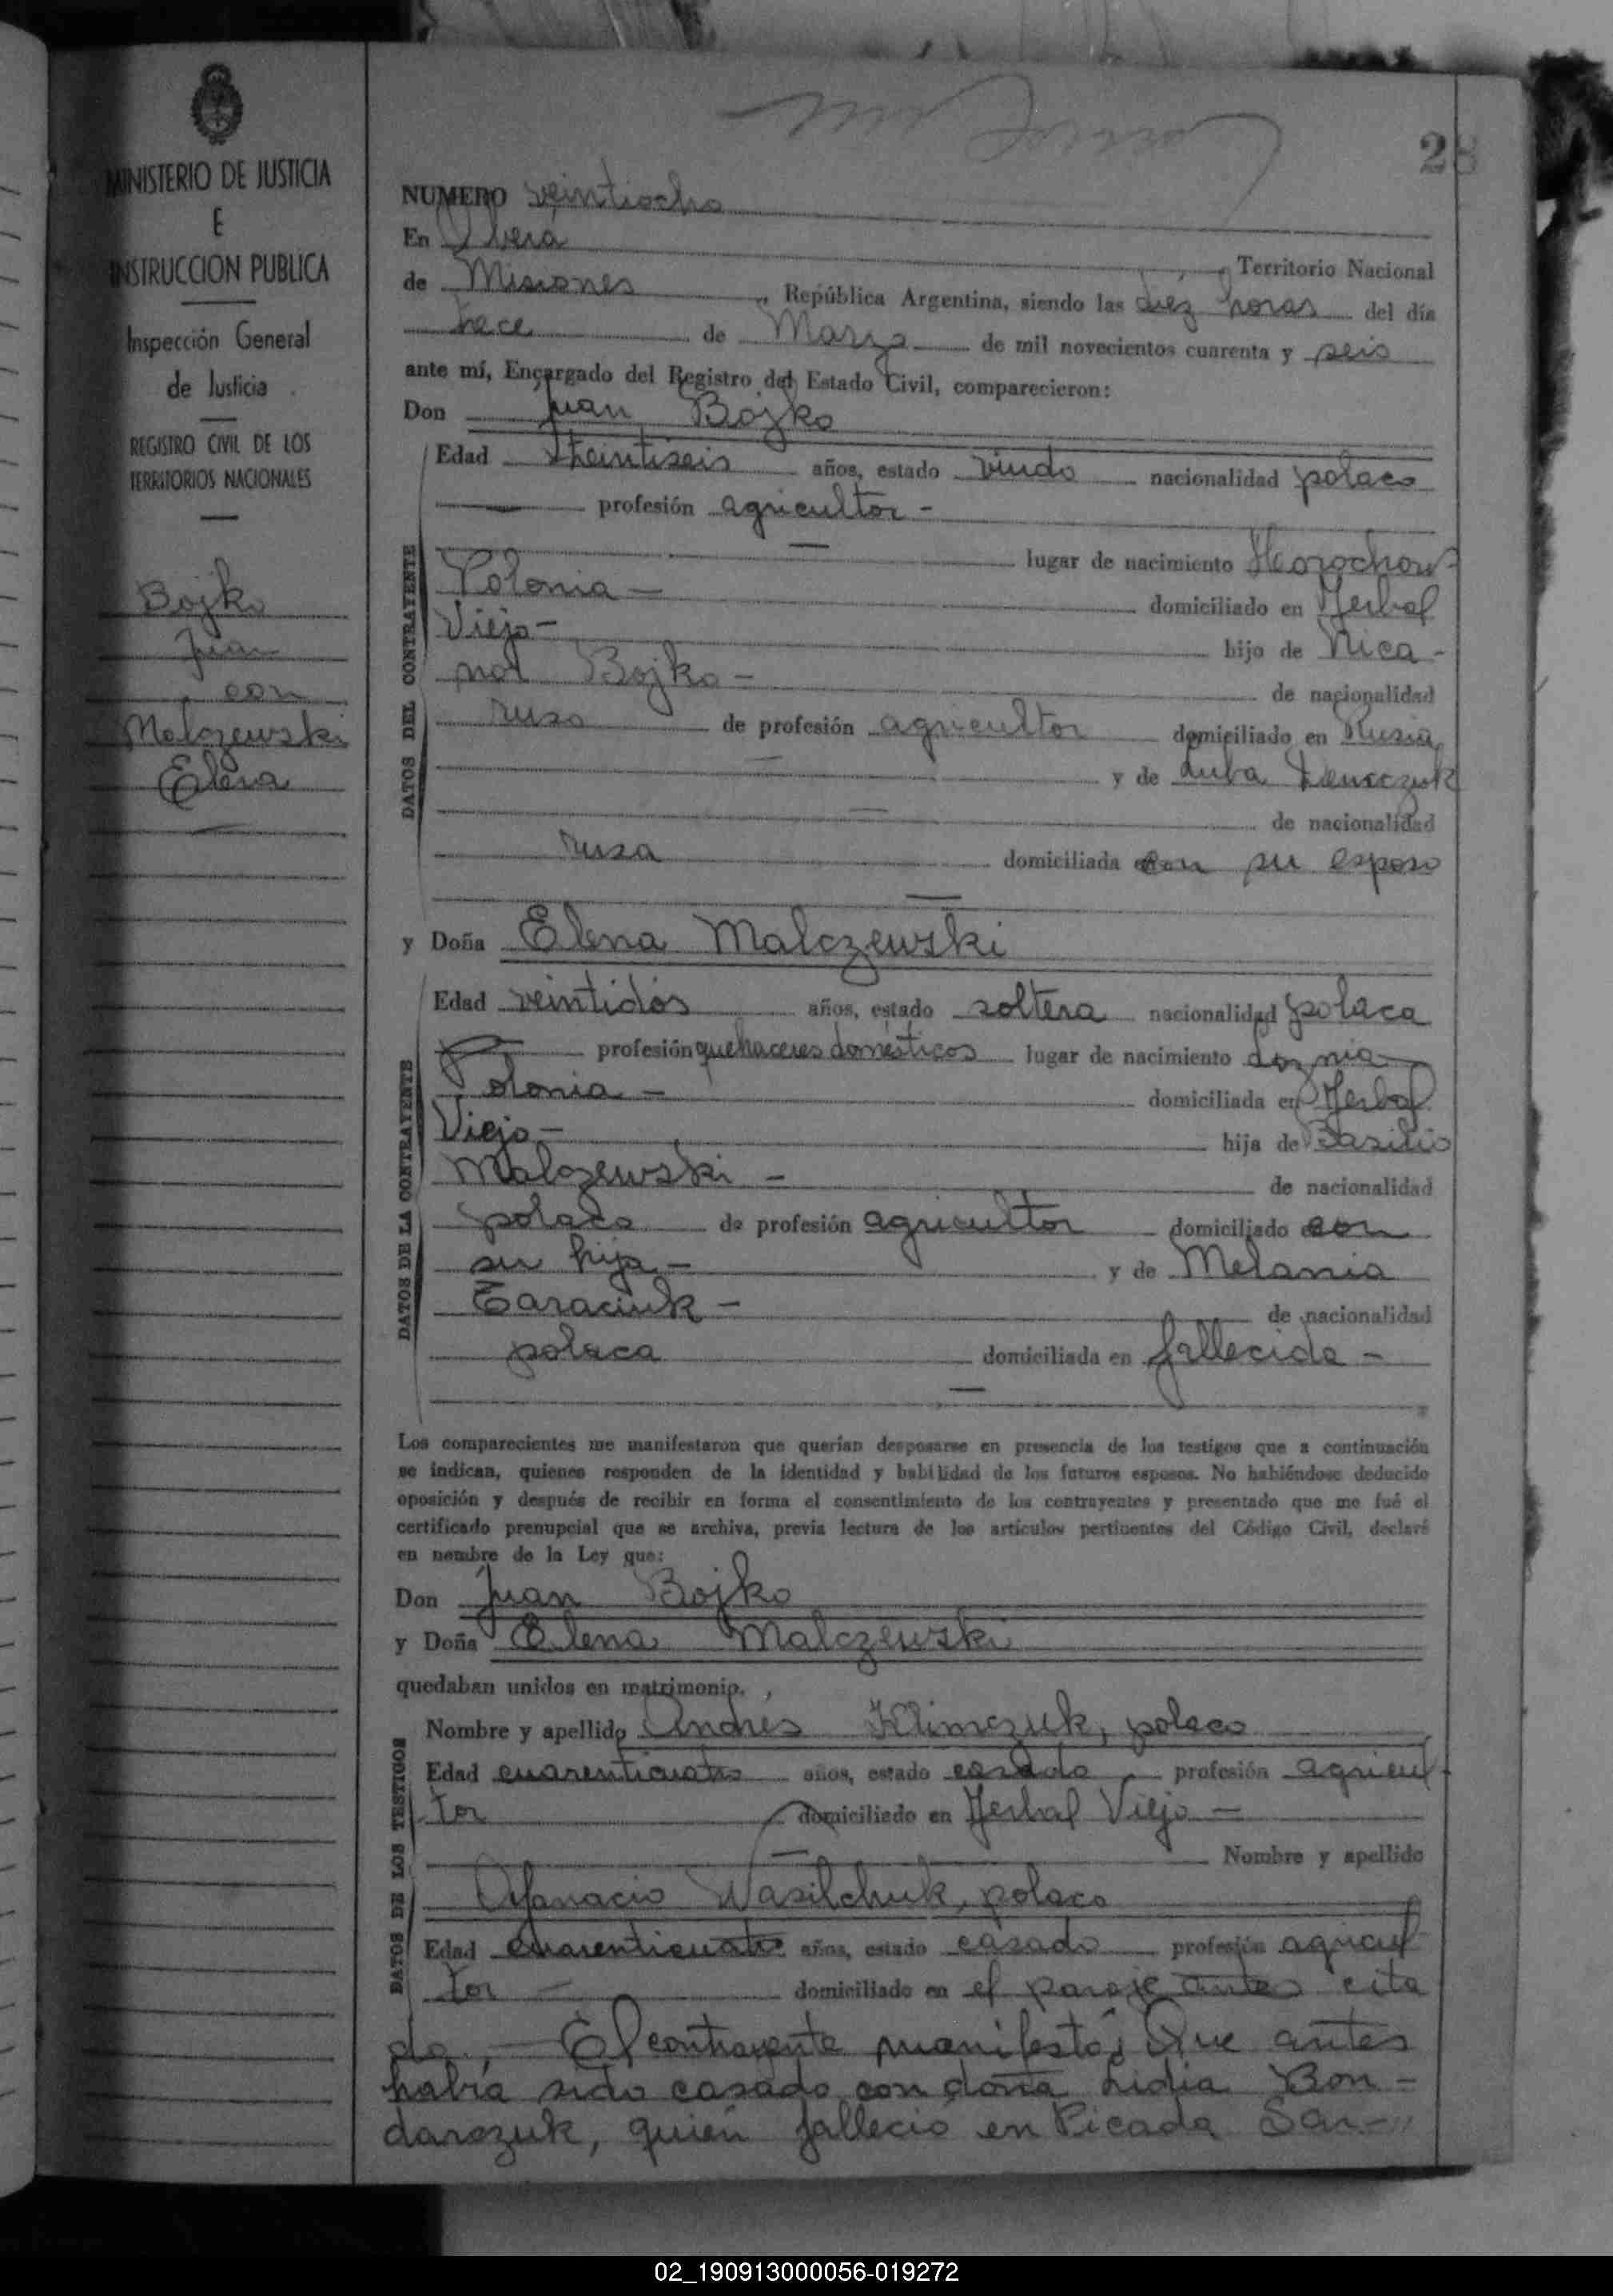 28
MINISTERIO DE JUSTICIA
E
INSTRUCCION PUBLICA
Inspección General
de Justicia
REGISTRO CIVIL DE LOS
TERRITORIOS NACIONALES
Bojko
Juan
con
Malczewski
Elena
NUMERO veintiocho
En Oberá
, Territorio Nacional
de Misiones, República Argentina, siendo las diez horas del día
trece de Marzo de mil novecientos cuarenta y seis
ante mí, Encargado del Registro del Estado Civil, comparecieron:
Don Juan Bojko
DATOS DEL CONTRAYENTE
Edad treintiseis años, estado viudo nacionalidad polaco
profesión agricultor -
lugar de nacimiento Horochow
Polonia - domiciliado en Yerbal
Viejo - hijo de Nica-
nor Bojko - de nacionalidad
ruso de profesión agricultor domiciliado en Rusia
y de Luba
de nacionalidad
rusa domiciliada con su esposo
y Doña Elena Malczewski
DATOS DE LA CONTRAYENTE
Edad veintidós años, estado soltera nacionalidad polaca
profesión quehaceres domésticos lugar de nacimiento
Polonia - domiciliada en Yerbal
Viejo - hija de Basilio
Malczewski - de nacionalidad
polaco de profesión agricultor domiciliado con
su hija - y de Melania
Taraciuk - de nacionalidad
polaca domiciliada en fallecida -
Los comparecientes me manifestaron que querían desposarse en presencia de los testigos que a continuación
se indican, quienes responden de la identidad y habilidad de los futuros esposos. No habiéndose deducido
oposición y después de recibir en forma el consentimiento de los contrayentes y presentado que me fué el
certificado prenupcial que se archiva, previa lectura de los artículos pertinentes del Código Civil, declaré
en nombre de la Ley que:
Don Juan Bojko
y Doña Elena Malczewski
quedaban unidos en matrimonio.
DATOS DE LOS TESTIGOS
Nombre y apellido Andrés Klimczuk, polaco
Edad cuarenticuatro años, estado casado, profesión agricul-
tor domiciliado en Yerbal Viejo -
Nombre y apellido
Afanacio Wasilchuk, polaco
Edad cuarenticuatro años, estado casado profesión agricul
tor - domiciliado en el paraje antes cita
do. - El contrayente manifestó: Que antes
había sido casado con doña Lidia Bon-
darczuk, quién falleció en Picada San-
02_190913000056-019272